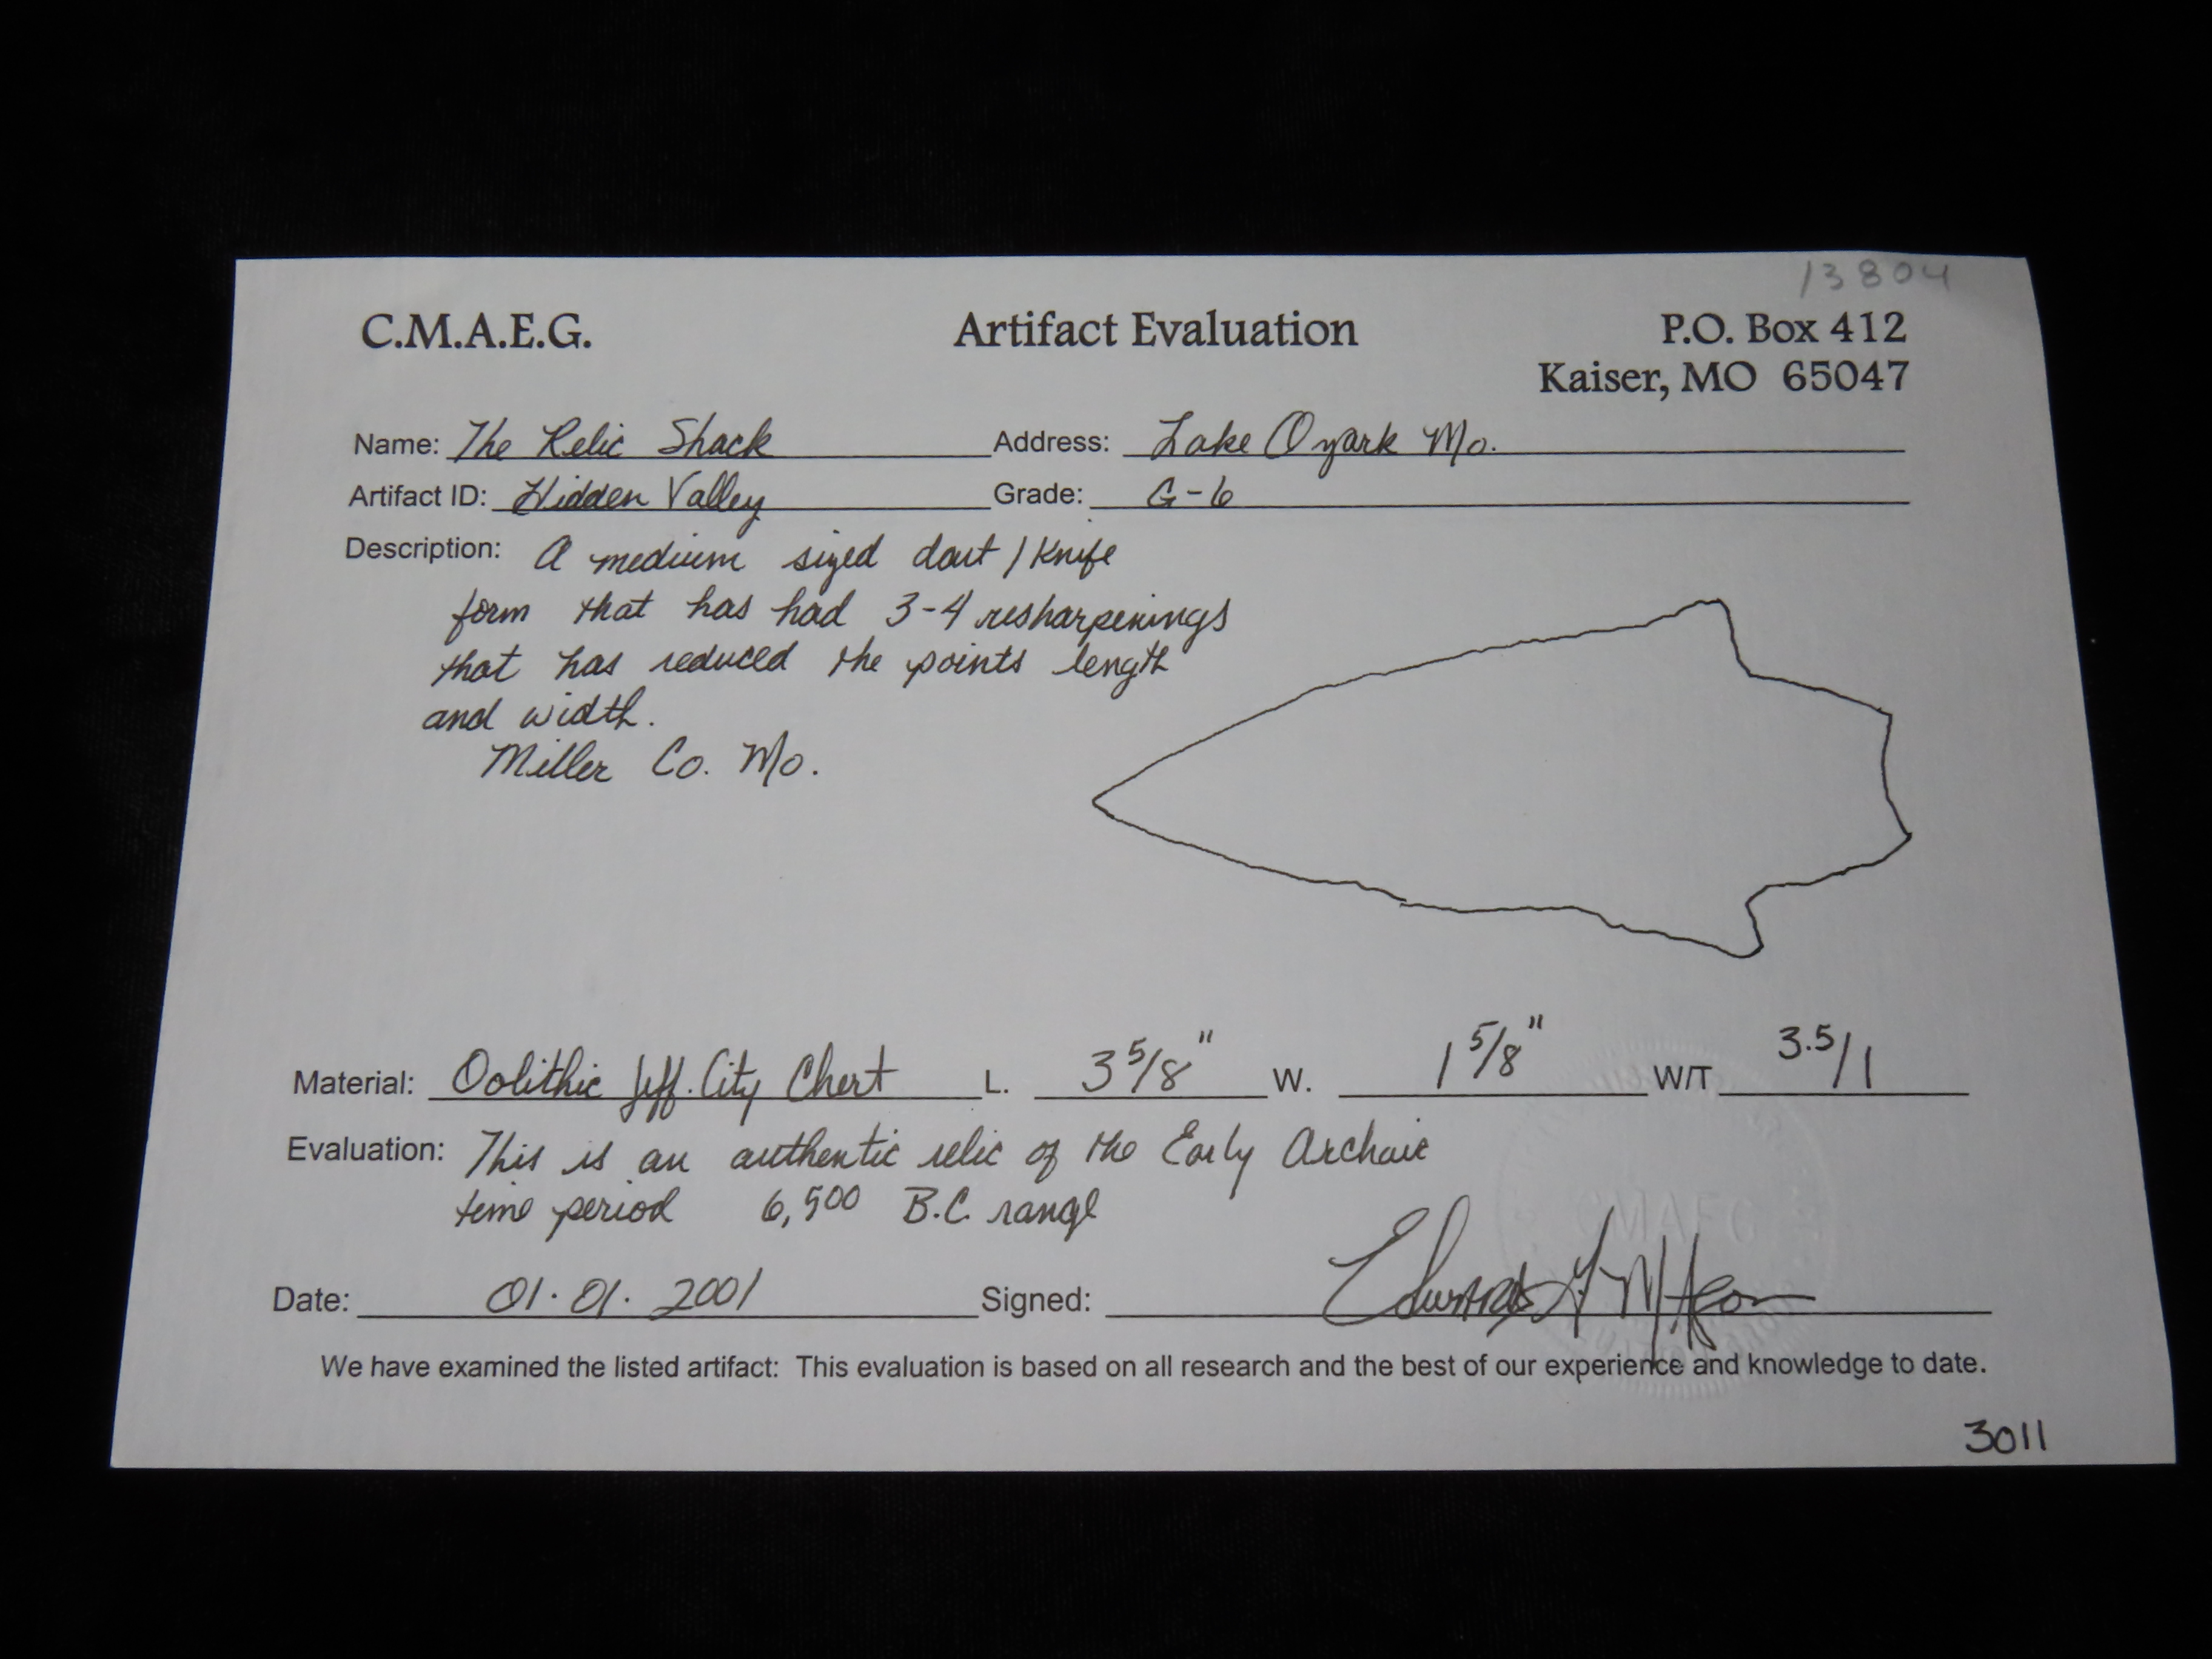 13804
C.M.A.E.G. Artifact Evaluation P.O. Box 412
Kaiser, MO 65047
Name: The Relic Shack Address: Lake Ozark Mo.
Artifact ID: Hidden Valley Grade: G-6
Description: A medium sized dart / Knife
form that has had 3-4 resharpenings
that has reduced the points length
and width.
Miller Co. Mo.
Material: Oolithic Jeff. City Chert L. 3 5/8" W. 1 5/8" W/T 3.5/1
Evaluation: This is an authentic relic of the Early Archaic
time period 6,500 B.C. range
CMAEG
Date: 01.01.2001 Signed:
We have examined the listed artifact: This evaluation is based on all research and the best of our experience and knowledge to date.
3011